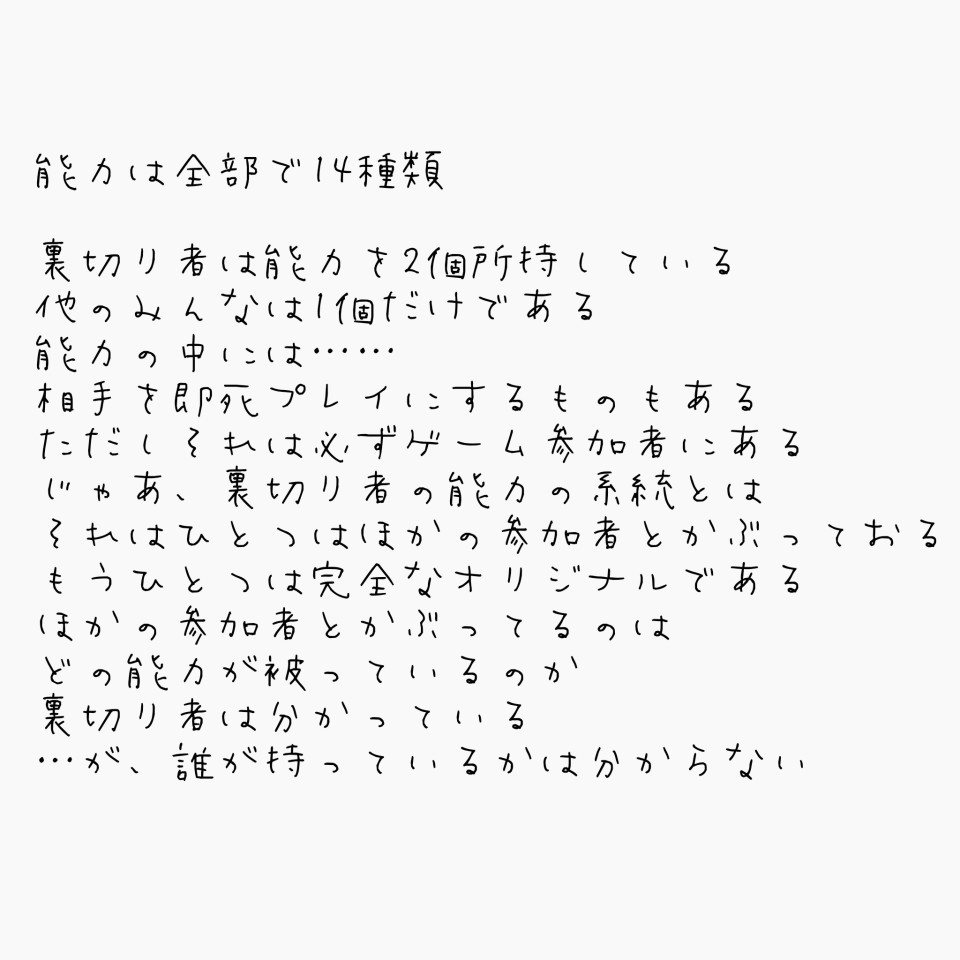 能力は全部で14種類
裏切り者は能力を2個所持している
他のみんなは1個だけである
能力の中には……
相手を即死プレイにするものもある
ただしそれは必ずゲーム参加者にある
じゃあ、裏切り者の能力の系統とは
それはひとつはほかの参加者とかぶっておる
もうひとつは完全なオリジナルである
ほかの参加者とかぶってるのは
どの能力が被っているのか
裏切り者は分かっている
…が、誰が持っているかは分からない